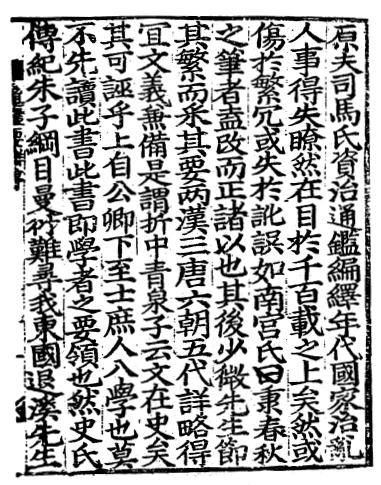 原夫司馬氏資治通鑑編繹年代國家治亂
人事得失瞭然在目於千百載之上矣然或
傷於繁冗或失於訛誤如南宮氏曰秉春秋
之筆者蓋改而正諸以也其後少微先生節
其繁而采其要两漢三唐六朝五代詳略得
宜文義兼備是謂折中青泉子云文在史矣
其可誣乎上自公卿下至士庶人入學也莫
不先讀此書此書即學者之要領也然史氏
傳紀朱子綱目曼衍難尋我東國退溪先生